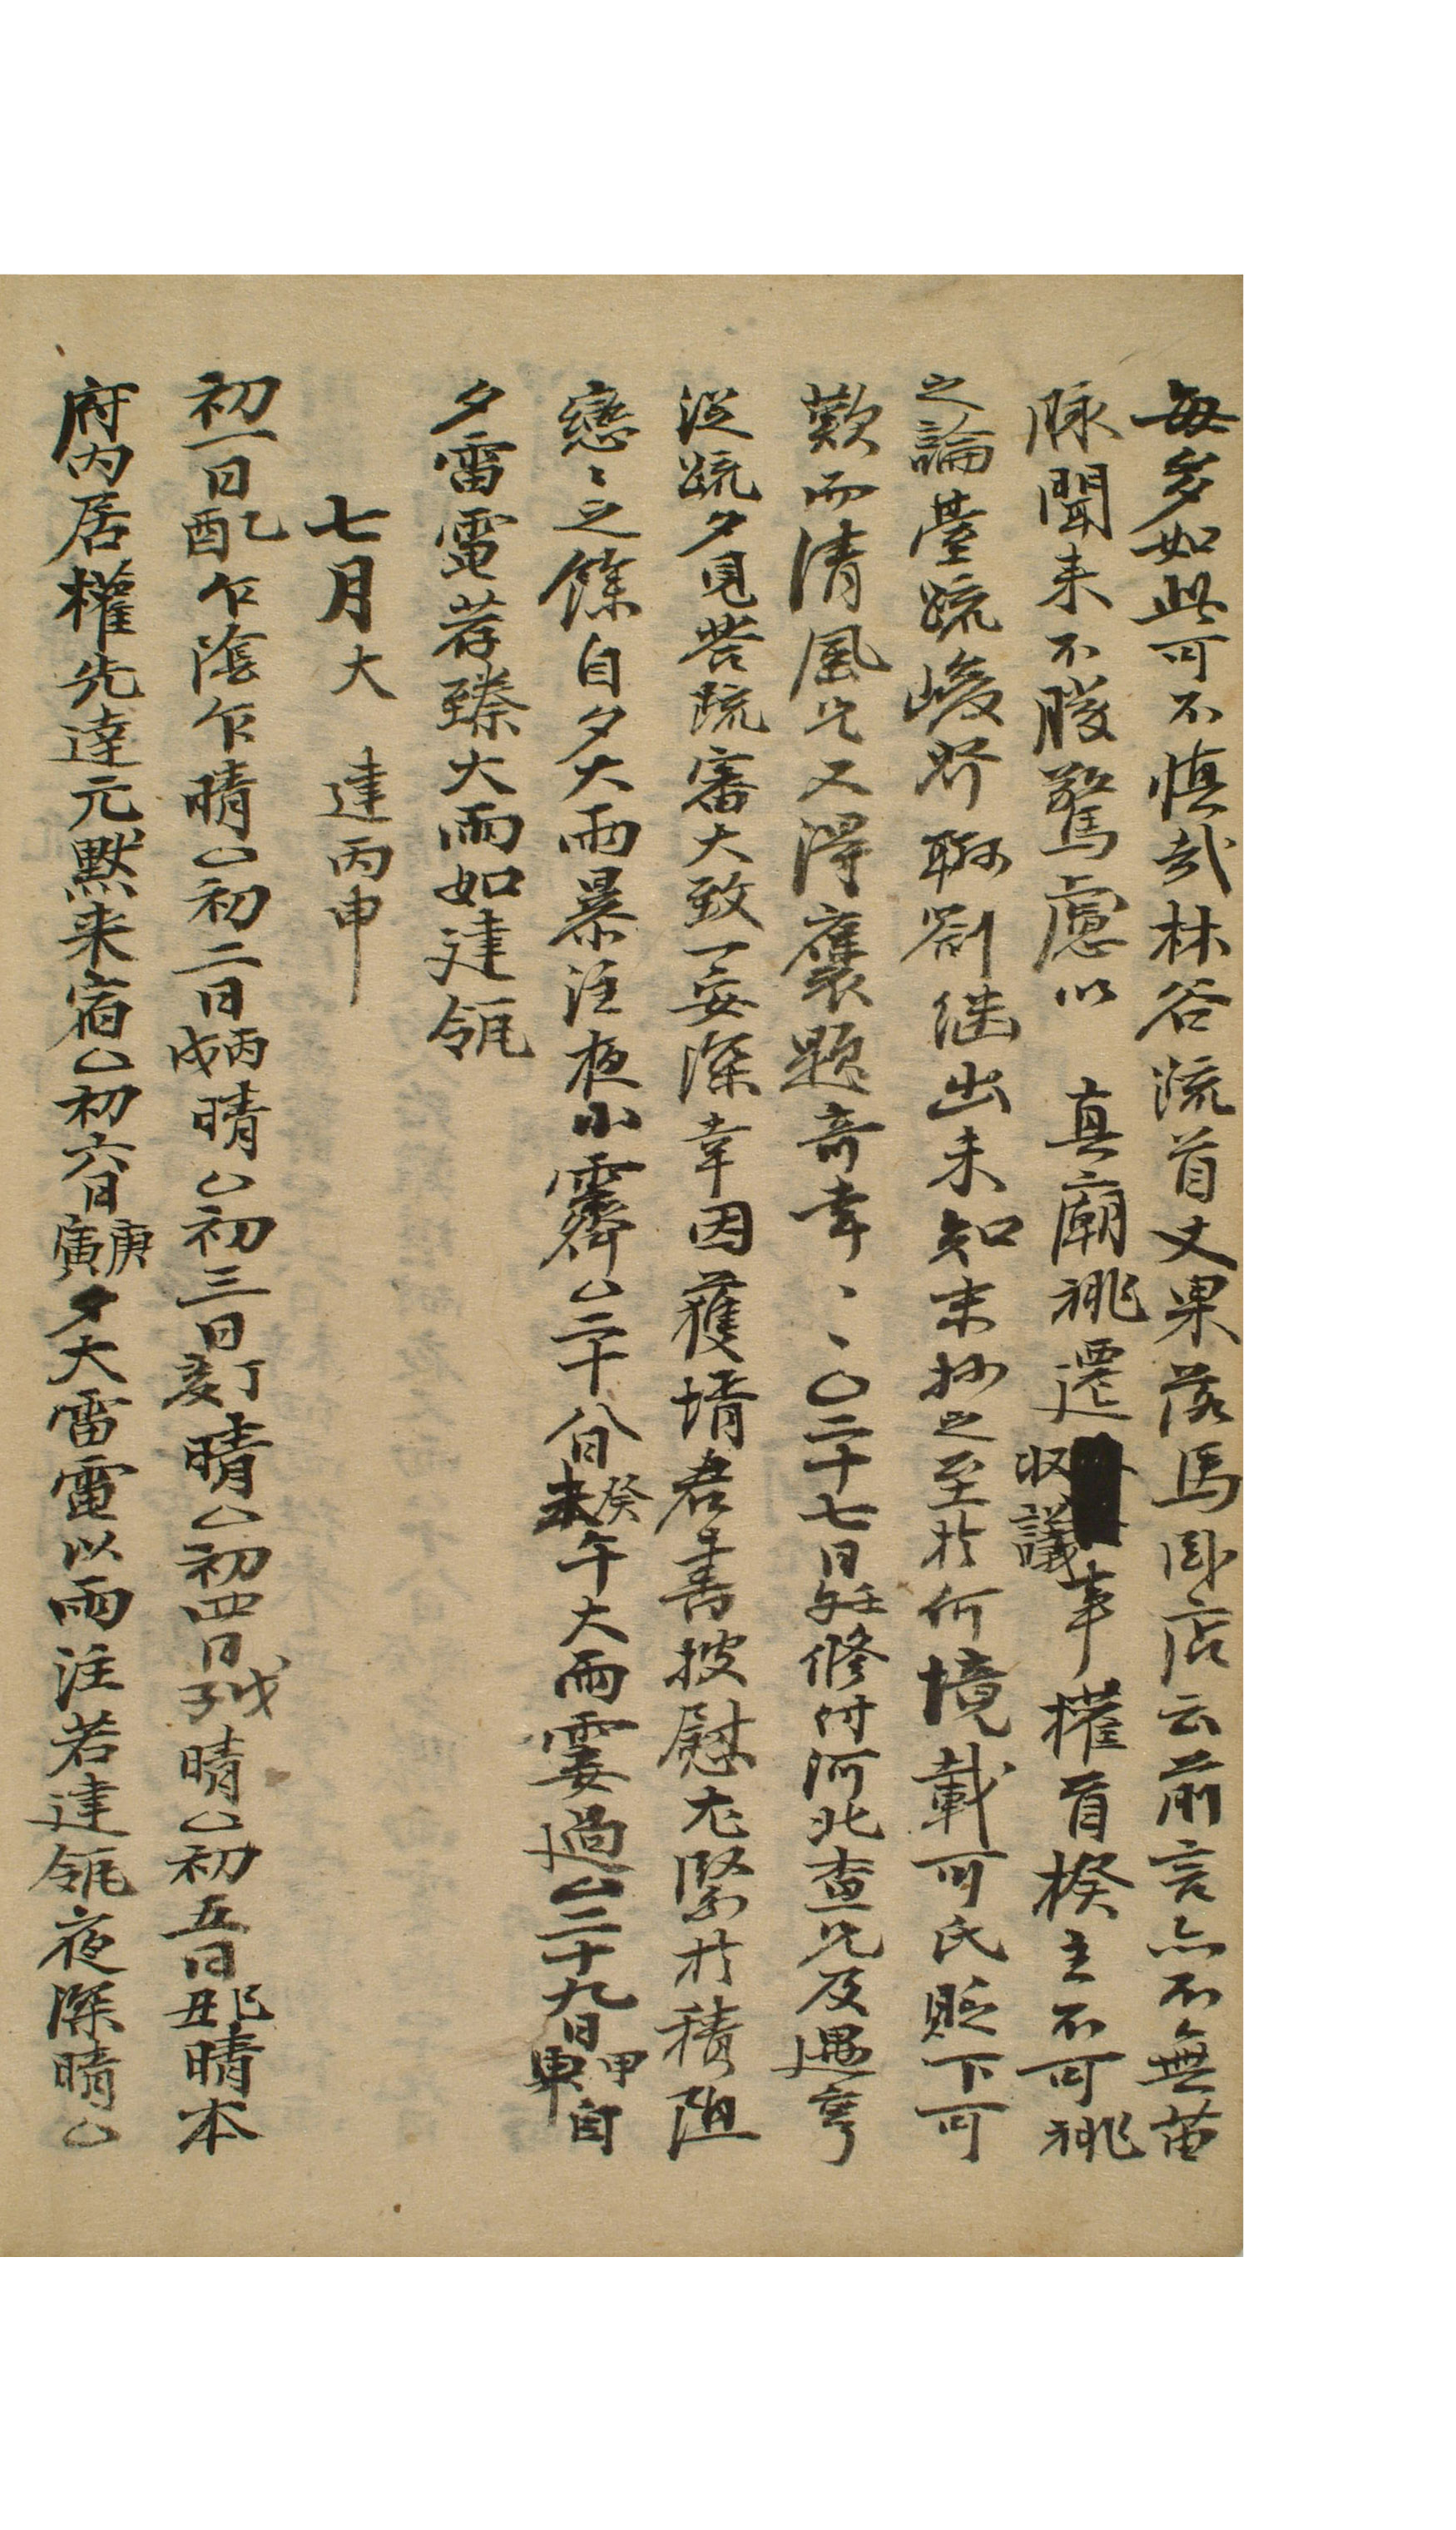 每多如此可不愼哉林谷流首丈果落馬臥店云前言亦不無苗
脉聞来不勝驚慮以　真廟祧遷収議事權首揆主不可祧
之論臺疏峻斥聯劄継出未知末抄之至於何境載可氏貶下可
歎而清風兄又得褒題奇幸〻〻〇二十七日壬午修付河北查兄及遇亨
從疏夕見荅疏審大致一妥深幸因獲壻君書披慰尤緊於積阻
戀〻之餘自夕大雨暴注夜小霽〇二十八日癸未午大雨霎過〇二十九日甲申自
夕雷電荐臻大雨如建瓴
七月大　建丙申
初一日乙酉乍陰乍晴〇初二日丙戌晴〇初三日丁亥晴〇初四日戊子晴〇初五日己丑晴本
府内居權先達元默来宿〇初六日庚寅夕大雷電以雨注若建瓴夜深晴〇